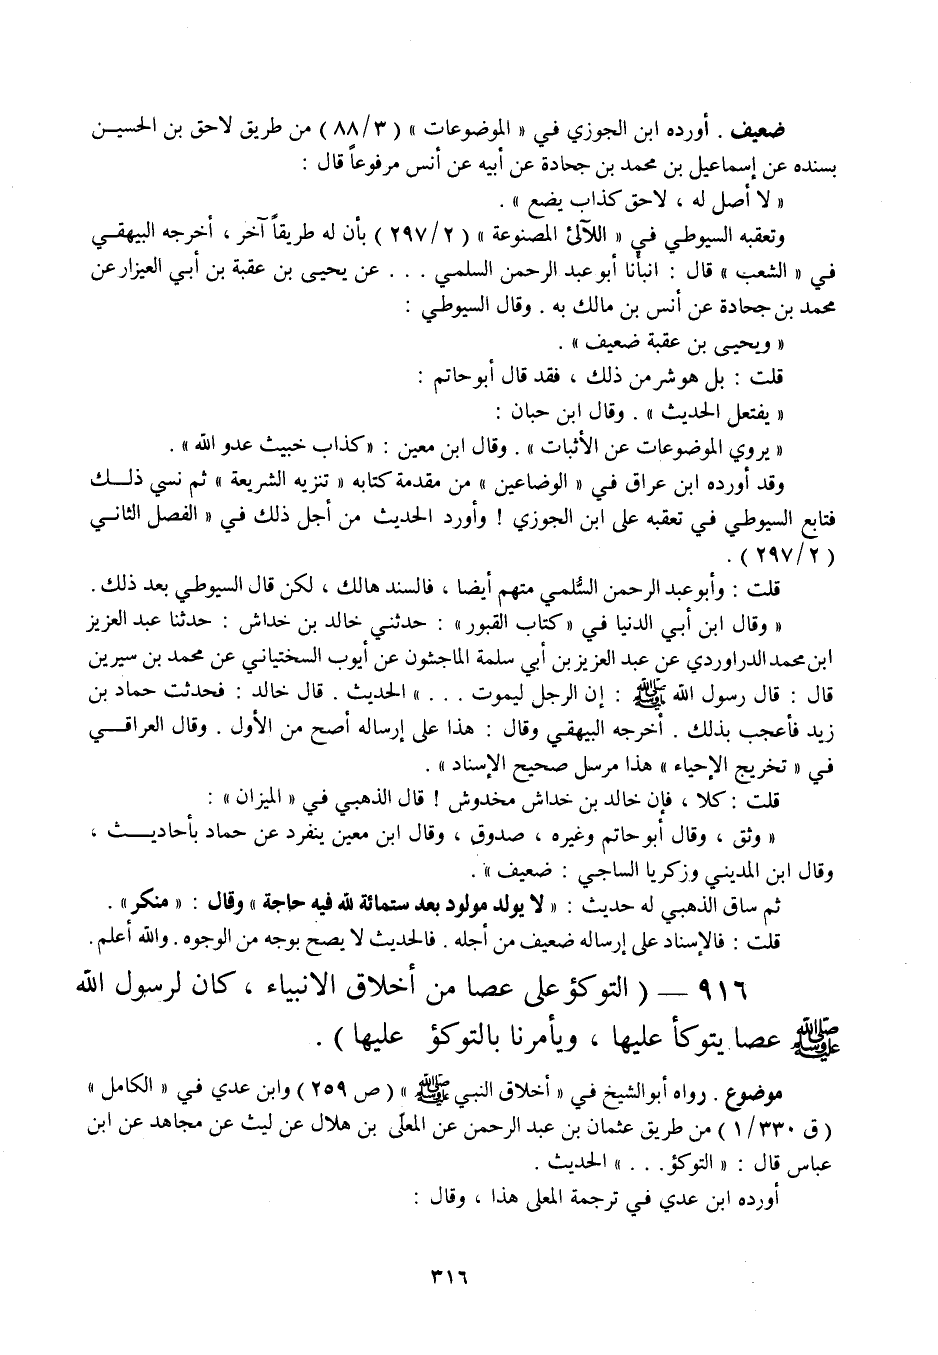 ضعيف . أورده ابن الجوزي في « الموضوعات » ( ٣/ ٨٨ ) من طريق لاحق بن الحسيـن
بسنده عن إسماعيل بن محمد بن جحادة عن أبيه عن أنس مرفوعاً قال :
« لا أصل له ، لاحق كذاب يضع » .
وتعقبه السيوطي في « اللآلئ المصنوعة » ( ٢/ ٢٩٧ ) بأن له طريقاً آخر ، أخرجه البيهقي
في « الشعب » قال : انبأنا أبو عبد الرحمن السلمي . . . عن يحيى بن عقبة بن أبي العيزار عن
محمد بن جحادة عن أنس بن مالك به . وقال السيوطي :
« ويحيى بن عقبة ضعيف » .
قلت : بل هو شر من ذلك ، فقد قال أبو حاتم :
« يفتعل الحديث » . وقال ابن حبان :
« يروي الموضوعات عن الأثبات » . وقال ابن معين : «كذاب خبيث عدو الله» .
وقد أورده ابن عراق في « الوضاعين » من مقدمة كتابه « تنزيه الشريعة » ثم نسي ذلـك
فتابع السيوطي في تعقبه على ابن الجوزي ! وأورد الحديث من أجل ذلك في « الفصل الثاني
( ٢/ ٢٩٧ ) .
قلت : وأبو عبد الرحمن السُّلمي متهم أيضا ، فالسند هالك ، لكن قال السيوطي بعد ذلك .
« وقال ابن أبي الدنيا في «كتاب القبور» : حدثني خالد بن خداش : حدثنا عبد العزيز
ابن محمد الدراوردي عن عبد العزيز بن أبي سلمة الماجثون عن أيوب السختياني عن محمد بن سيرين
قال : قال رسول الله ﷺ : إن الرجل ليموت . . . » الحديث . قال خالد : فحدثت حماد بن
زيد فأعجب بذلك . أخرجه البيهقي وقال : هذا على إرساله أصح من الأول . وقال العراقـي
في « تخريج الإحياء » هذا مرسل صحيح الإسناد » .
قلت : كلا ، فإن خالد بن خداش مخدوش ! قال الذهبي في « الميزان » :
« وثق ، وقال أبو حاتم وغيره ، صدوق ، وقال ابن معين ينفرد عن حماد بأحاديـث ،
وقال ابن المديني وزكريا الساجي : ضعيف » .
ثم ساق الذهبي له حديث : « لا يولد مولود بعد ستمائة لله فيه حاجة » وقال : « منكر » .
قلت : فالإسناد على إرساله ضعيف من أجله . فالحديث لا يصح بوجه من الوجوه . والله أعلم .
٩١٦ ــ ( التوكؤ على عصا من أخلاق الانبياء ، كان لرسول الله
ﷺ عصا يتوكأ عليها ، ويأمرنا بالتوكؤ عليها ) .
موضوع . رواه أبو الشيخ في « أخلاق النبي ﷺ » ( ص ٢٥٩ ) وابن عدي في « الكامل »
( ق ٣٣٠/ ١ ) من طريق عثمان بن عبد الرحمن عن المعلّى بن هلال عن ليث عن مجاهد عن ابن
عباس قال : « التوكؤ . . . » الحديث .
أورده ابن عدي في ترجمة المعلى هذا ، وقال :
٣١٦